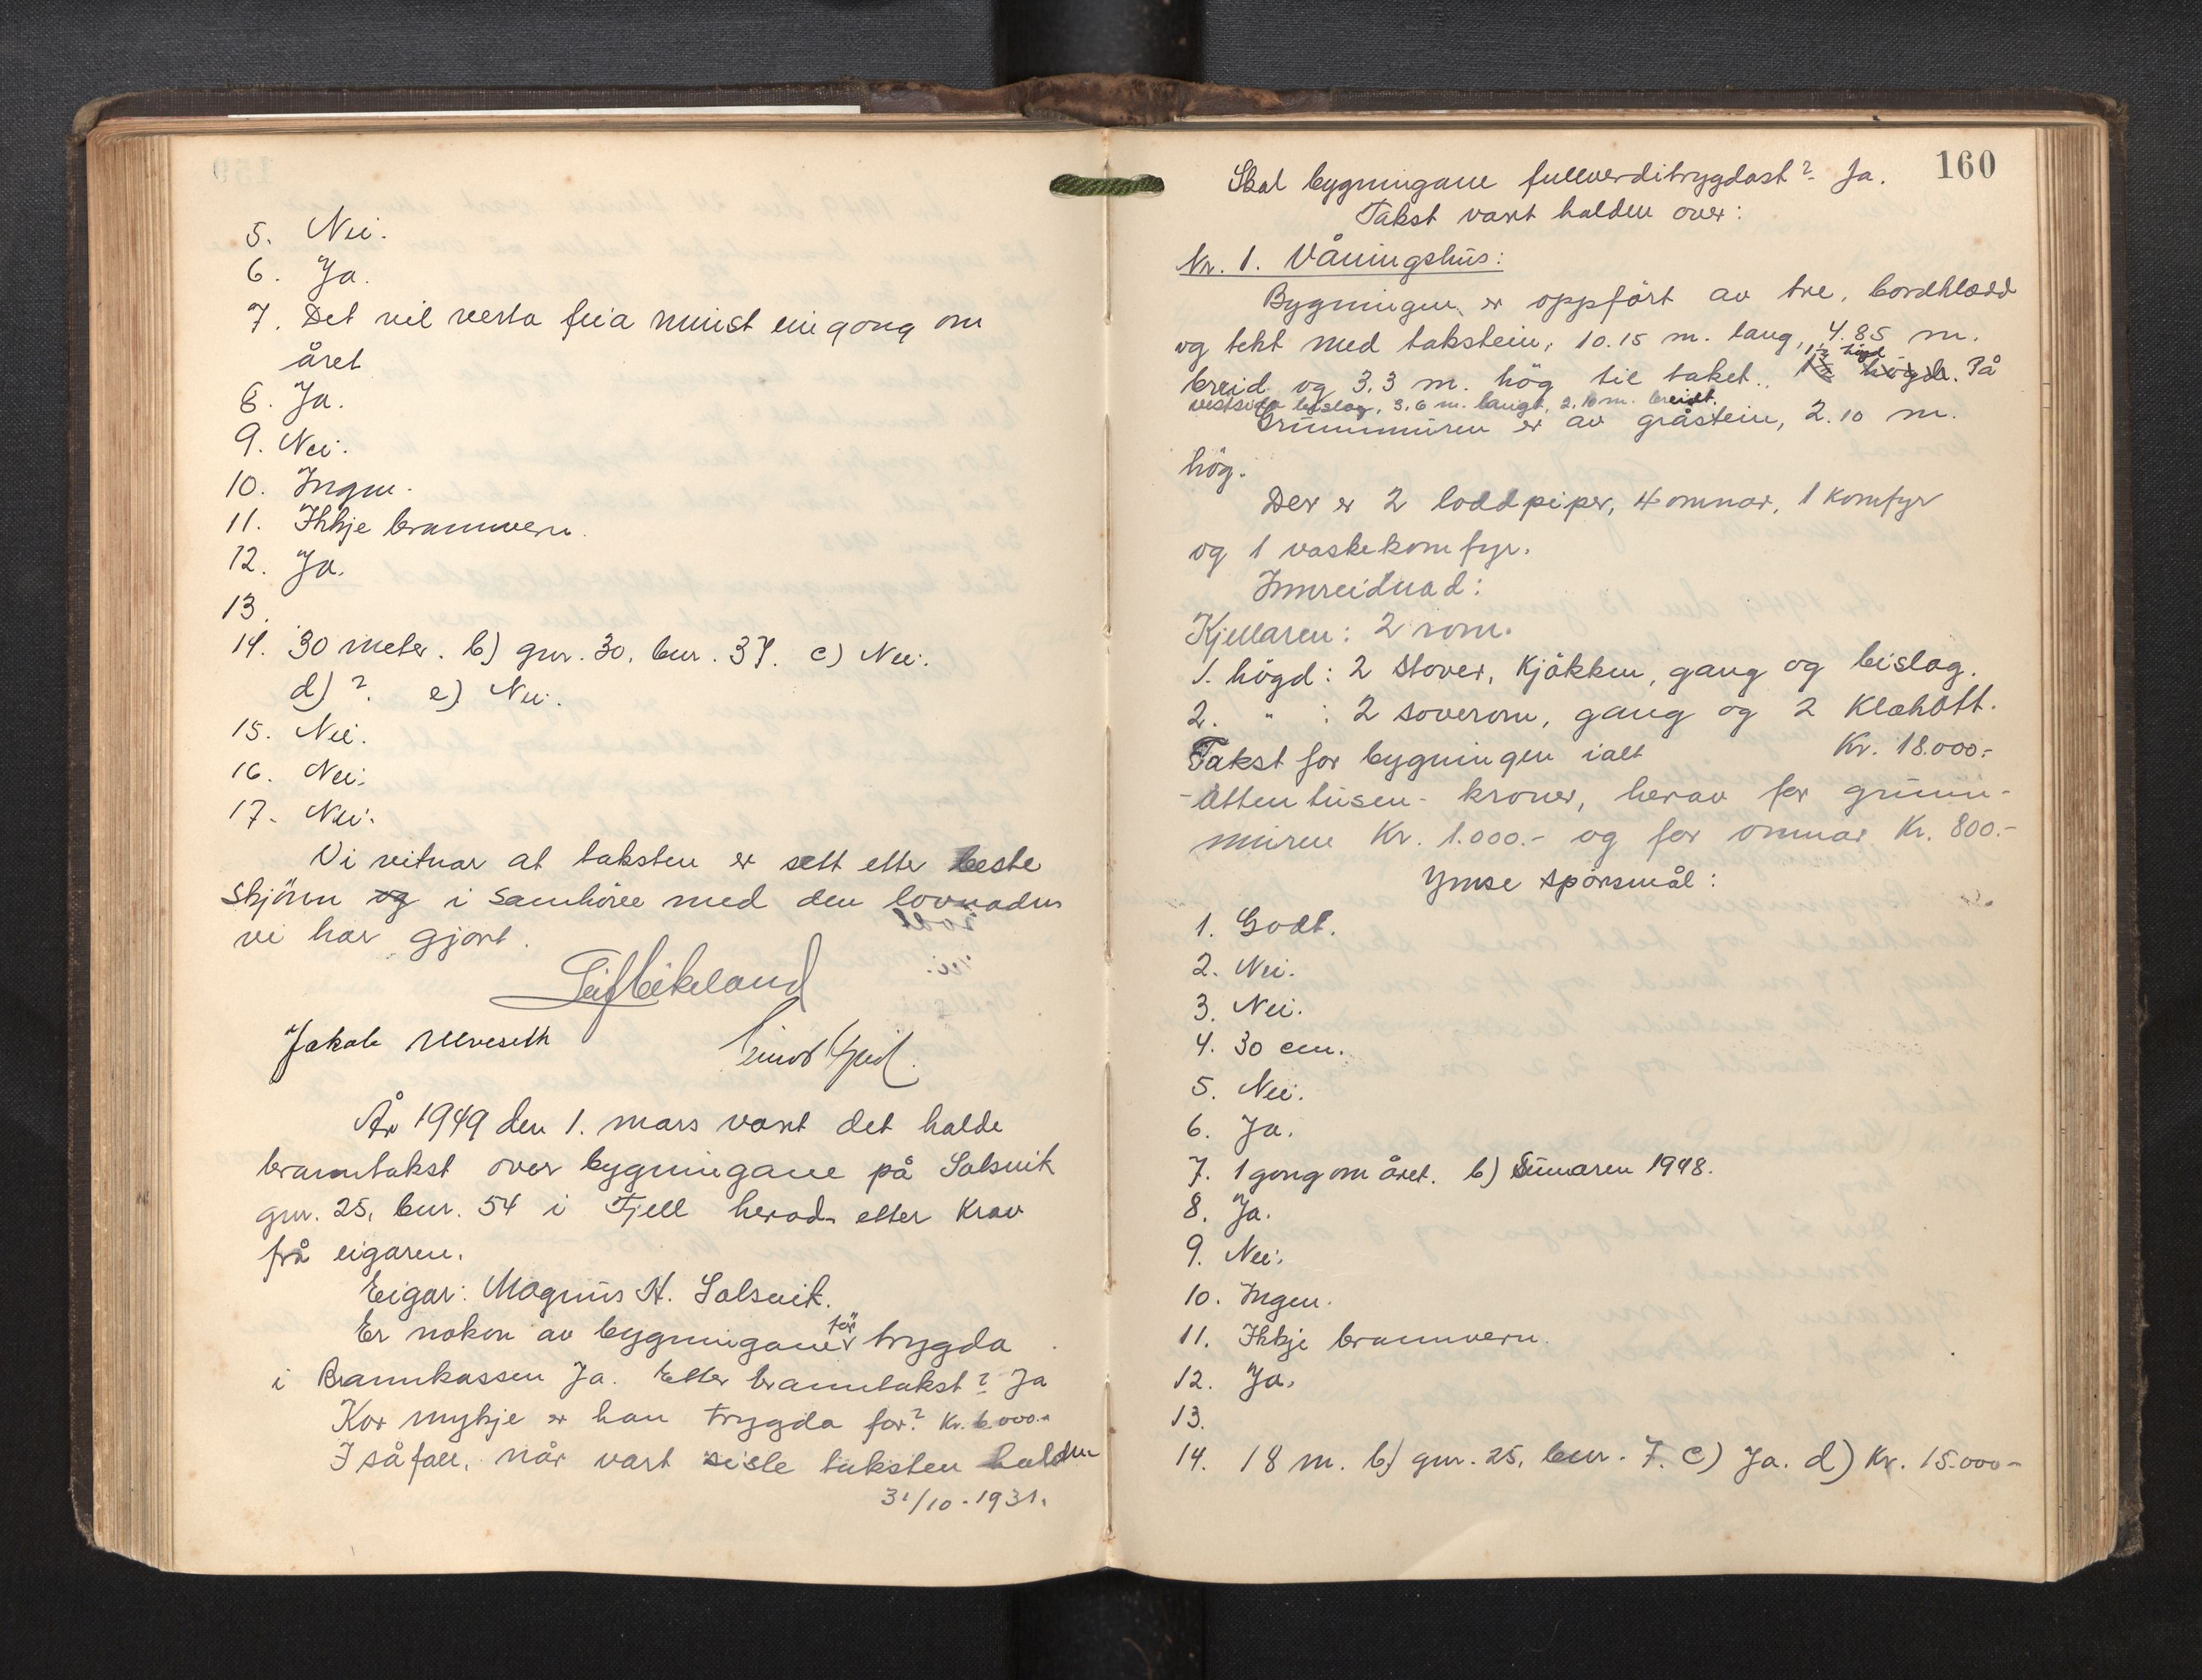 5. Nei.
6. Ja.
7. Det vil verta feia minst ein gong om
året
8. Ja.
9. Nei.
10. Ingen.
11. Ikkje brannvern.
12. Ja.
13.
14. 30 meter. b) gnr. 30, bnr. 37. c) Nei.
d) ?. e) Nei.
15. Nei.
16. Nei.
17. Nei.
Vi vitnar at taksten er sett etter beste
skjönn og i samhöve med den lovnaden
vi har gjort.
Jakob Ulveseth
År 1949 den 1. mars vart det halde
branntakst over bygningane på Solsvik
gnr. 25, bnr. 54 i Fjell herad etter krav
frå eigaren.
Eigar: Magnus H. Solsvik.
Er nokon av bygningane för trygda
i Brannkassen Ja. Etter branntakst? Ja
Kor mykje er han trygda for? Kr. 6.000.-
I såfall, når vart siste taksten halden
31/10-1931.
160
Skal bygningane fullverditrygdast? Ja.
Takst vart halden over:
Nr. 1. Våningshus:
Bygningen er oppfört av tre, bordkledd
og tekt med takstein, 10.15 m. lang, 4.85 m.
breid og 3.3 m. hög til taket. 1½ högd. På
vestsida bislag, 3.6 m. langt, 2.10 m. breidt.
Grunnmuren er av gråstein, 2.10 m.
hög.
Der er 2 loddpiper, 4 omnar, 1 komfyr
og 1 vaskekomfyr.
Innreidnad:
Kjellaren: 2 rom.
1. högd: 2 stover, kjökken, gang og bislag.
2. " : 2 soverom, gang og 2 klekott.
Takst for bygningen ialt Kr. 18.000.-
- Atten tusen - kroner, herav for grunn-
muren Kr. 1.000.- og for omnar Kr. 800.-
Ymse spörsmål:
1. Godt.
2. Nei.
3. Nei.
4. 30 cm.
5. Nei.
6. Ja.
7. 1 gong om året. b) Sumaren 1948.
8. Ja.
9. Nei.
10. Ingen.
11. Ikkje brannvern.
12. Ja.
13.
14. 18 m. b) gnr. 25, bnr. 7. c) Ja. d) Kr. 15.000-